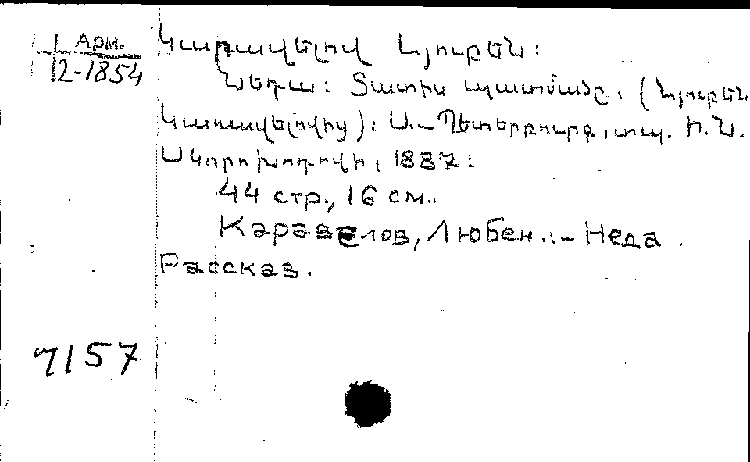 1 Арм.
12-1854
Կարավելով Լյուբեն:
Նեդա: Տատիս պատմածը. (Լյուբեն
Կարավելովից): Ս.-Պետերբուրգ, տպ. Ի.Ն.
Սկորոխոդովի, 1887:
44 стр., 16 см.
Каравелов, Любен.- Неда.
Рассказ.
7157